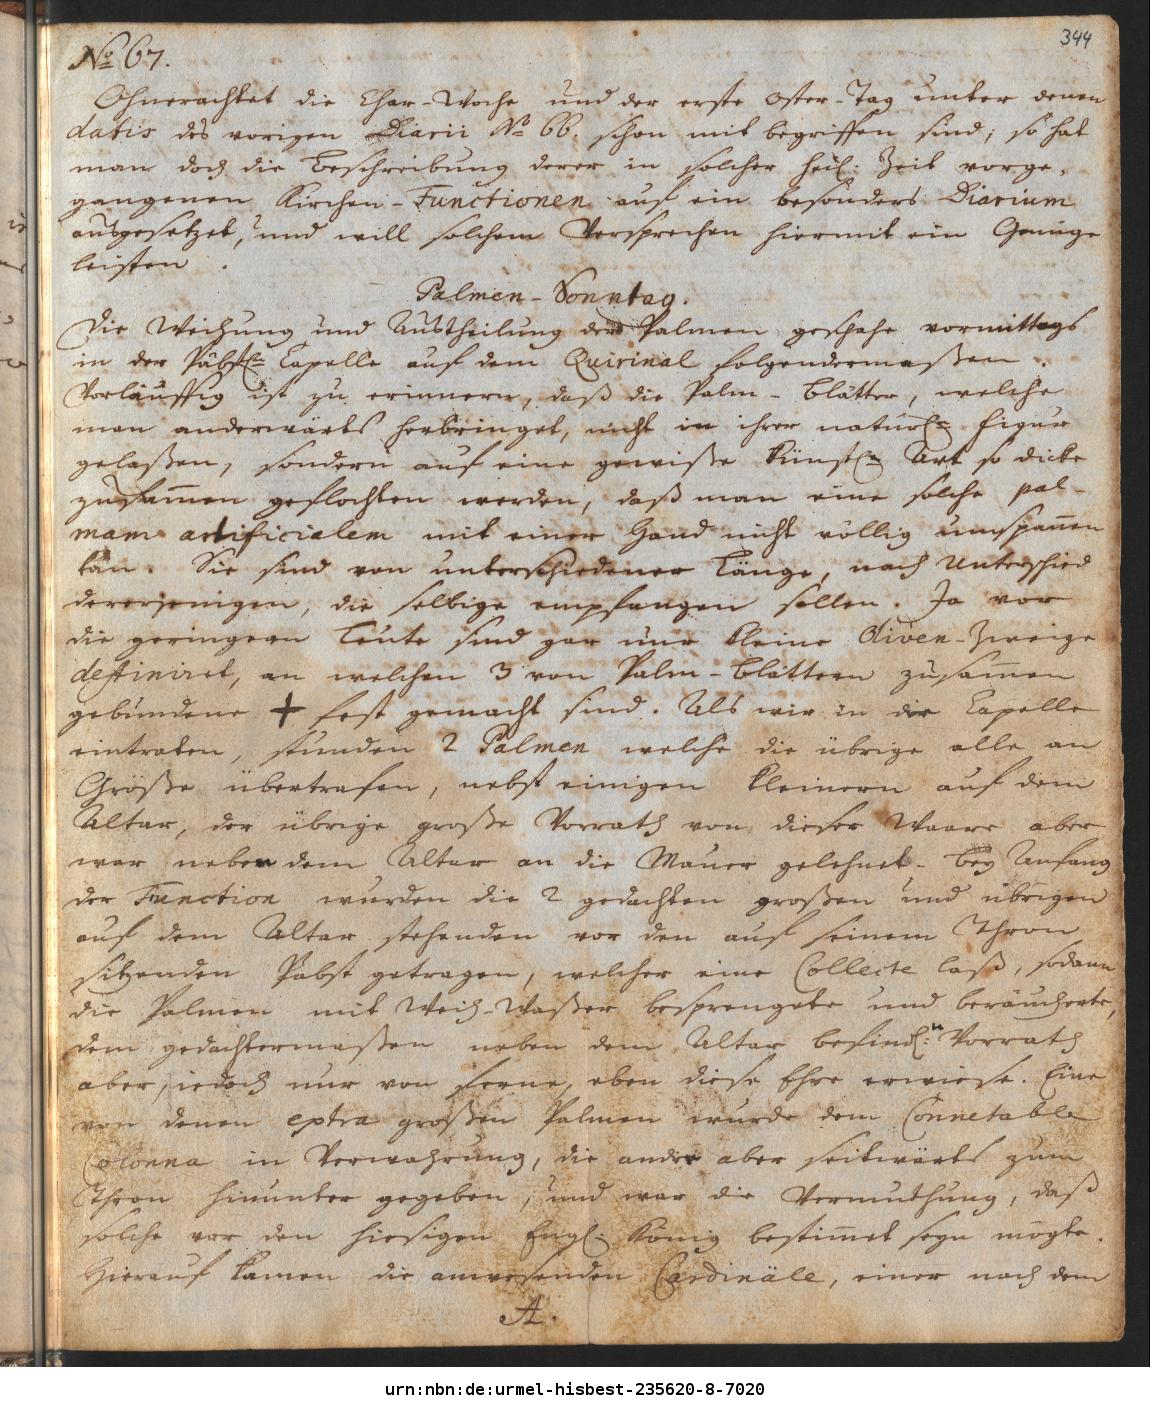 344
No 67.
Ohnerachtet die Char-Woche und der erste Oster-Tag unter denen
datis des vorigen Diarii No 66. schon mit begriffen sind; so hat
man doch die Beschreibung derer in solcher heil: Zeit vorge,
gangenen Kirchen-Functionen auf ein besonders Diarium
ausgesetzet, und will solchem Versprechen hiermit ein Genüge
leisten.
Palmen-Sonntag.
Die Weihung und Austheilung der Palmen geschahe vormittags
in der Päbstln Capelle auf dem Quirinal folgendermaßen.
Vorläuffig ist zu erinnern, daß die Palm-Blätter, welche
man anderwärts herbringet, nicht in ihrer natürln Figur
gelaßen, sondern auf eine gewiße künstln Art so dicke
zusam̅en geflochten werden, daß man eine solche pal-
mam artificialem mit einer Hand nicht völlig umspan̅en
kan̅. Sie sind von unterschiedener Länge, nach Unterschied
dererjenigen, die selbige empfangen sollen. Ja vor
die geringern Leute sind gar nur kleine Oliven-Zweige
destiniret, an welchen 3 von Palm-Blättern zusam̅en
gebundene + fest gemacht sind. Als wir in die Capelle
eintraten, stunden 2 Palmen welche die übrige alle an
Größe übertrafen, nebst einigen kleinern auf dem
Altar, der übrige große Vorrath von dieser Waare aber
war neben dem Altar an die Mauer gelehnet. Bey Anfang
der Function wurden die 2 gedachten großen und übrigen
auf dem Altar stehenden vor den auf seinem Thron
sitzenden Pabst getragen, welcher eine Collecte laß, sodann
die Palmen mit Weih-Waßer besprengete und beräucherte,
dem gedachtermaßen neben dem Altar befindl:n Vorrath
aber, iedoch nur von ferne, eben diese Ehre erwiese. Eine
von denen extra großen Palmen wurde dem Connetable
Colonna in Verwahrung, die andre aber seitwärts zum
Thron hinunter gegeben, und war die Vermuthung, daß
solche vor den hiesigen Engl: König bestim̅et seyn mögte.
Hierauf kamen die anwesenden Cardinäle, einer nach dem
A.
urn:nbn:de:urmel-hisbest-235620-8-7020